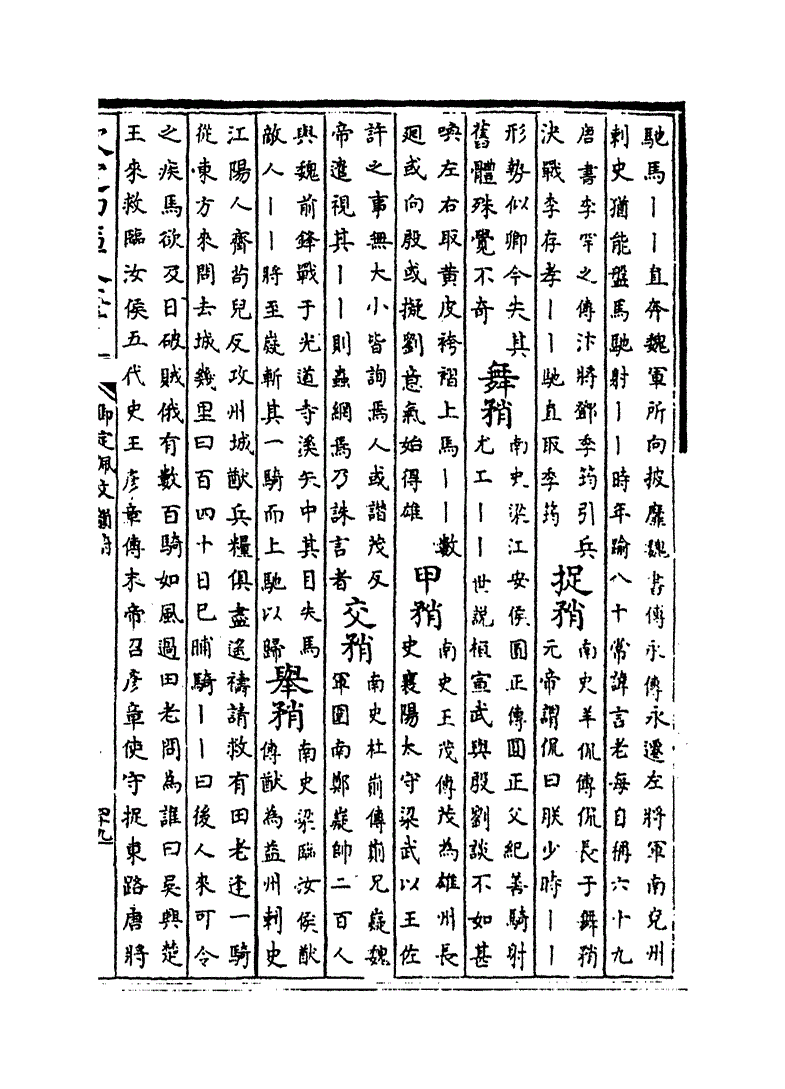 馳馬丨丨直奔魏軍所向披靡魏書傅永傳永遷左將軍南兗州
刺史猶能盤馬馳射丨丨時年踰八十常諱言老每自稱六十九
唐書李罕之傳汴將鄧季筠引兵
決戰李存孝丨丨馳直取季筠
捉矟
南史羊侃傳侃長于舞矟
元帝謂侃曰朕少時丨丨
形勢似卿今失其
舊體殊覺不奇
舞矟
南史梁江安侯圓正傳圓正父紀善騎射
尤工丨丨丨世說桓宣武與殷劉談不如甚
喚左右取黃皮袴褶上馬丨丨數
廻或向殷或擬劉意氣始得雄
甲矟
南史王茂傳茂為雄州長
史襄陽太守梁武以王佐
許之事無大小皆詢焉人或譖茂反
帝遣視其丨丨則蟲網焉乃誅言者
交矟
南史杜崱傳崱兄嶷魏
軍圍南鄭嶷帥二百人
與魏前鋒戰于光道寺溪矢中其目失馬
敵人丨丨將至嶷斬其一騎而上馳以歸
舉矟
南史梁臨汝侯猷
傳猷為益州刺史
江陽人齊苟兒反攻州城猷兵糧俱盡遙禱請救有田老逢一騎
從東方來問去城幾里曰百四十日已晡騎丨丨曰後人來可令
之疾馬欲及日破賊俄有數百騎如風過田老問為誰曰吳興楚
王來救臨汝侯五代史王彥章傳末帝召彥章使守捉東路唐將
御定佩文韻府